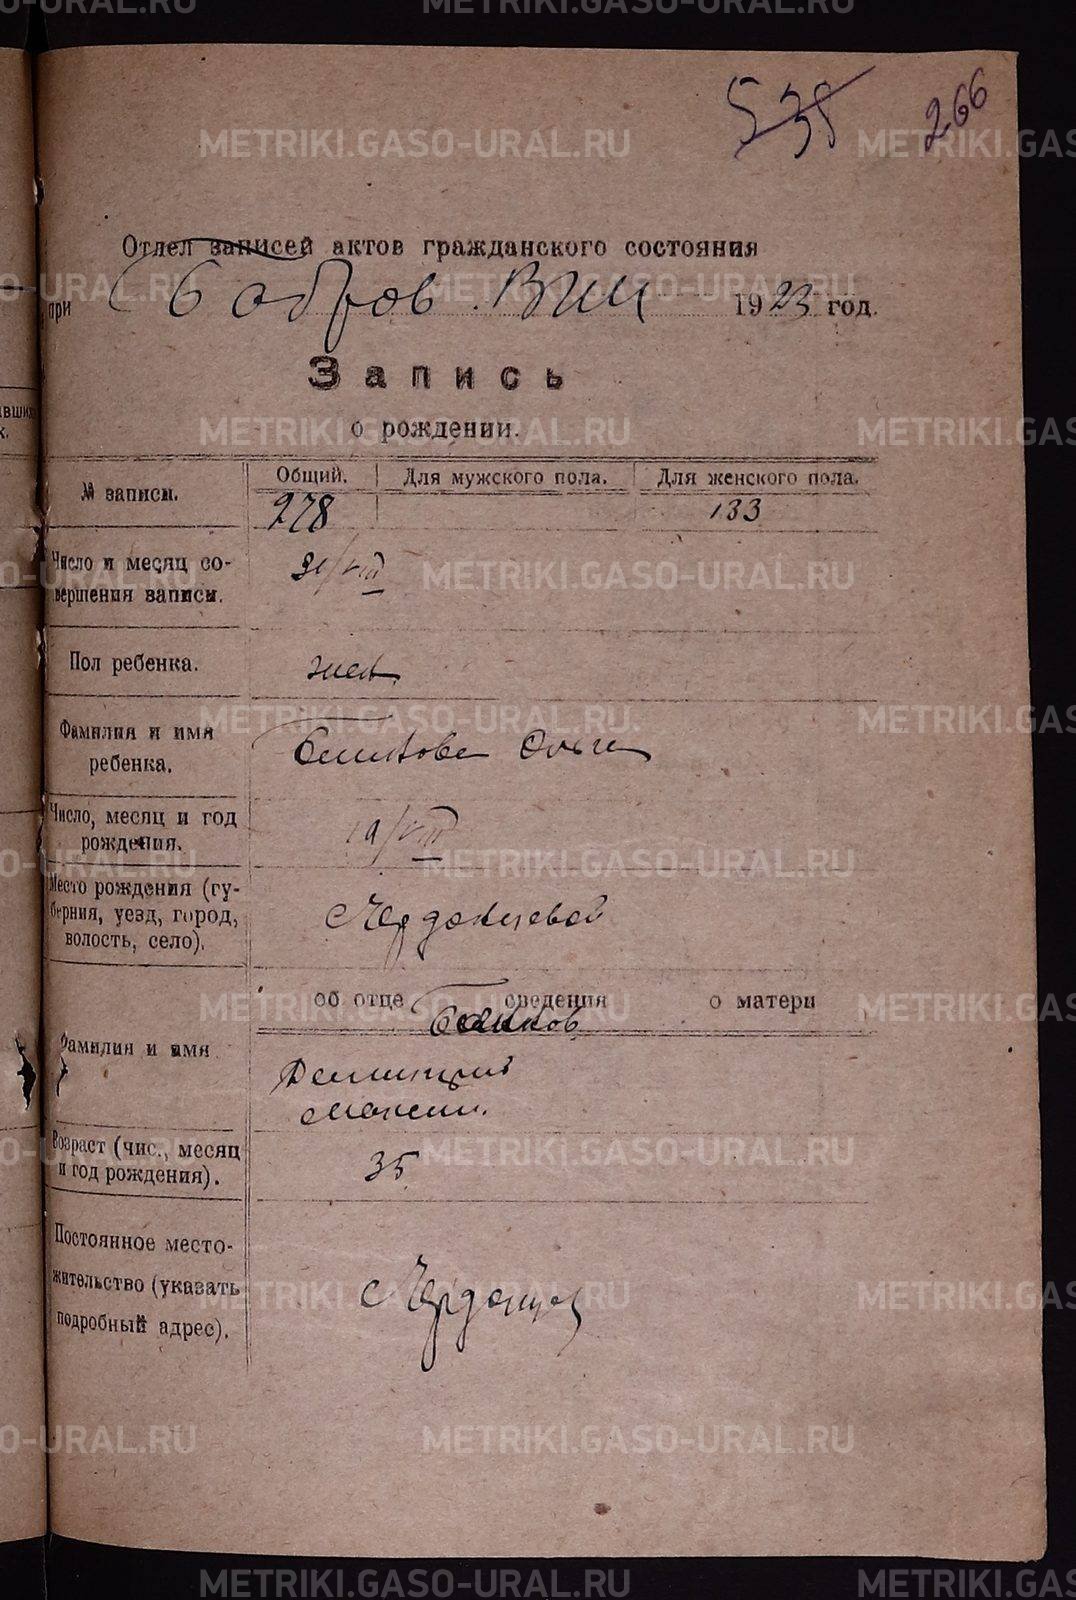 538 266
Отдел записей актов гражданского состояния
при Бобров. ВИК 1923 год.
Запись
о рождении.
№ записи. Общий. Для мужского пола. Для женского пола.
278 133
Число и месяц со-
вершения записи. 31/VIII
Пол ребенка. жен.
Фамилия и имя
ребенка. Ольга
Число, месяц и год
рождения. 19/VIII
Место рождения (гу-
берния, уезд, город,
волость, село).
об отце сведения о матери
Фамилия и имя
Дмитрий
Максим.
Возраст (чис., месяц
и год рождения). 35
Постоянное место-
жительство (указать
подробный адрес).
METRIKI.GASO-URAL.RU